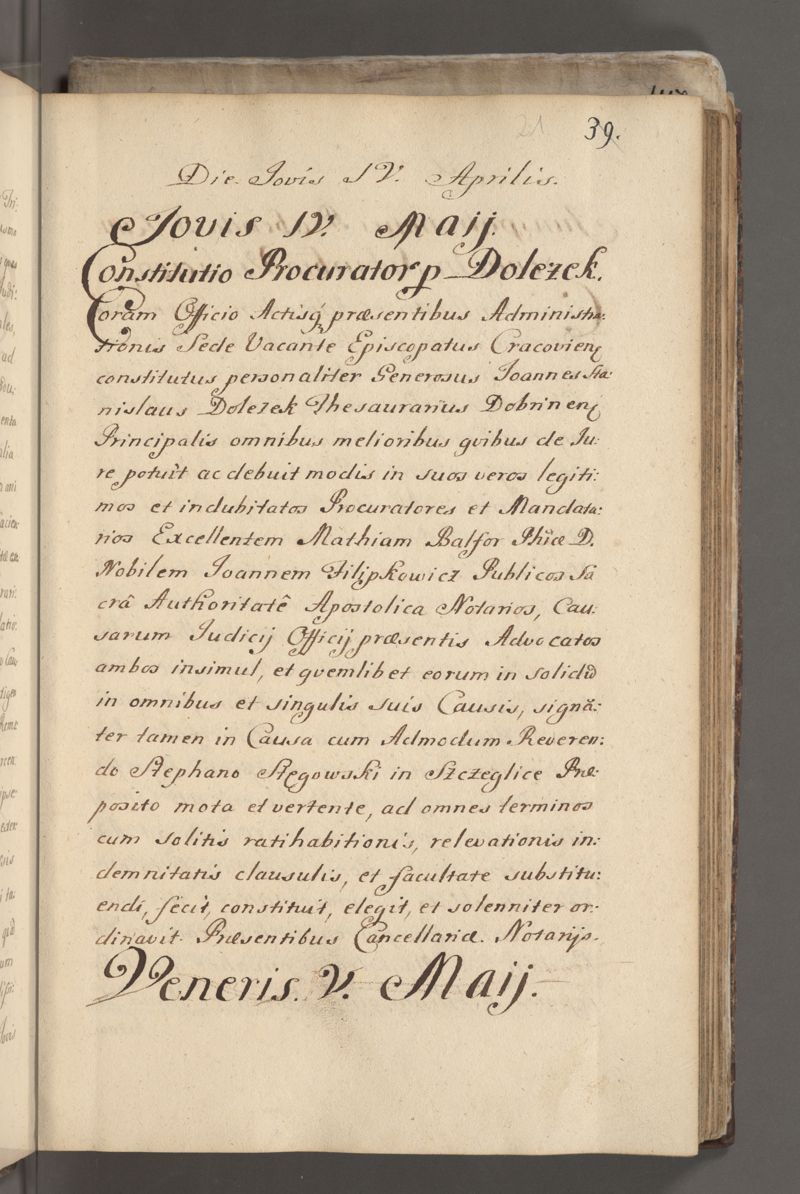 21 39.
Die Jovis IV. Aprilis.
Jovis IV. Maij.
Constitutio Procurator p Dolezek.
Coram Officio Actisq præsentibus Administra-
tionis Sede Vacante Episcopatus Cracovien
constitutus personaliter Generosus Joannes Sta:
nislaus Dolezek Thesaurarius Dobrinen
Principalis omnibus melioribus qvibus de Ju:
re potuit ac debuit modis in suos veros legiti:
mos et indubitatos Procuratores et Mandata:
rios Excellentem Mathiam Balfor Phiæ D.
Nobilem Joannem Filipkowicz Publicos Sa
crâ Authoritatê Apostolica Notarios, Cau:
sarum Judicij Officij præsentis Advocatos
ambos insimul, et qvemlibet eorum in solidũ
in omnibus et singulis suis Causis, signã:
ter tamen in Causa cum Admodum Reveren:
do Stephano Stęgowski in Szczeglice Præ-
posito mota et vertente, ad omnes terminos
cum solitis ratihabitionis, relevationis in:
demnitatis clausulis, et facultate substitu:
endi, fecit, constituit, elegit, et solenniter or-
dinavit. Præsentibus Cancellariæ. Notarijs.
Veneris. V. Maij.